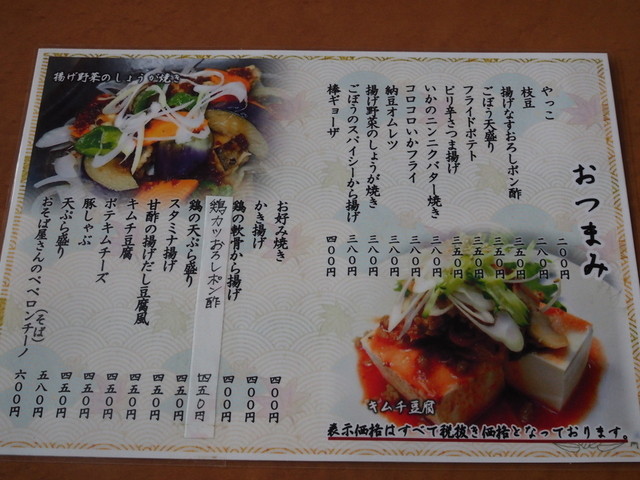 おつまみ
やっこ 二〇〇円
枝豆 二八〇円
揚げなすおろしポン酢 三五〇円
ごぼう天盛り 三五〇円
フライドポテト 三五〇円
ピリ辛さつま揚げ 三五〇円
いかのニンニクバター焼き 三八〇円
コロコロいかフライ 三八〇円
納豆オムレツ 三八〇円
揚げ野菜のしょうが焼き 三八〇円
ごぼうのスパイシーから揚げ 三八〇円
棒ギョーザ 四〇〇円
お好み焼き 四〇〇円
かき揚げ 四〇〇円
鶏の軟骨から揚げ 四〇〇円
鶏カツおろしポン酢 四五〇円
鶏の天ぷら盛り 四五〇円
スタミナ揚げ 四五〇円
甘酢の揚げだし豆腐風 四五〇円
キムチ豆腐 四五〇円
ポテキムチーズ 四五〇円
豚しゃぶ 四五〇円
天ぷら盛り 五八〇円
おそば屋さんのペペロンチーノ(そば) 六〇〇円
揚げ野菜のしょうが焼き
キムチ豆腐
表示価格はすべて税抜き価格となっております。